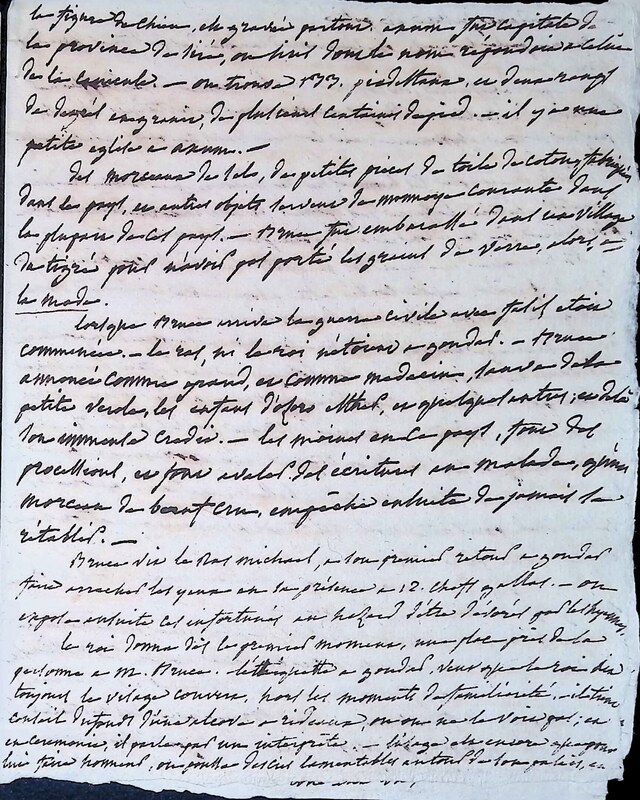 la figure du Chien, est gravée partout. axum fut capitale de
la province de Siré, ou Siris dont le nom répondrait à celui
de la canicule. — on trouve 133. piedestaux, et deux rangs
de degrés en granit, de plusieurs centaines de pieds. — il y a une
petite eglise a axum. —
des morceaux de sels, de petites pieces de toile de coton, fabriquées
dans le pays, et autres objets servent de monnoye courante dans
la plupart de ces pays. — Bruce fut embarassé dans un village
du tigré pour n'avoir pas porté les grains de verre, alors, à
la mode.
lorsque Bruce arriva la guerre civile avec fasil etoit
commencée. — le ras, ni le roi n'étoient a gondar. — Bruce
annoncé comme grand, et comme medecin, sauva de la
petite verole, les enfans d'Ozoro Esther, et quelques autres; et de là
son immense credit. — les moines en ce pays, font des
processions, et font avaler des écritures au malade, qu'un
morceau de boeuf cru, empêche ensuite de jamais se
rétablir. —
Bruce vit le Ras michael, a son premier retour a gondar
faire arracher les yeux en sa présence a 12. chefs gallas. — on
expose ensuite ces infortunés au hazard d'être dévorés par les hyennes.
le roi donna dès le premier moment, une place près de la
personne a M. Bruce. l'ethiquette a gondar, veut que le roi ait
toujours le visage couvert, hors les moments de familiarité. il tient
conseil du fond d'une alcove a rideaux, où on ne le voit pas; et
en ceremonie, il parle par un interprete. — l'usage est encore que pour
lui faire honneur, on pousse des cris lamentables autour de son palais, et